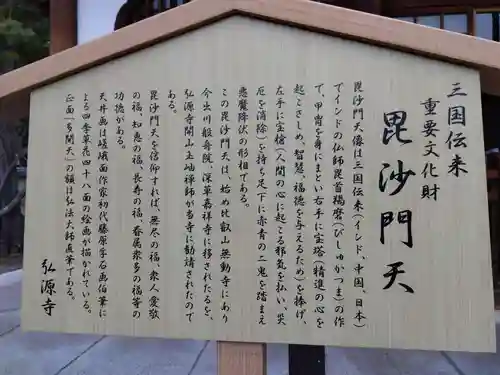 三国伝来
重要文化財
毘沙門天
毘沙門天像は三国伝来(インド、中国、日本)
でインドの仏師毘首羯磨(びしゅかつま)の作
で、甲冑を身にまとい右手に宝塔(精進の心を
起こさしめ、智慧、福徳を与えるため)を捧げ、
左手に宝棒(人間の心に起こる邪気を払い、災
厄を消除)を持ち足下に赤青の二鬼を踏まえ
悪魔降伏の形相である。
この毘沙門天は、始め比叡山無動寺にあり
今出川般舟院、深草嘉祥寺に移されたるを、
弘源寺開山玉岫禅師が当寺に勧請されたので
ある。
毘沙門天を信仰すれば、無尽の福、衆人愛敬
の福、知恵の福、長寿の福、眷属衆多の福等の
功徳がある。
天井画は嵯峨面作家初代藤原孚石画伯筆に
よる四季草花四十八面の絵画が描かれている。
正面「多聞天」の額は弘法大師直筆である。
弘源寺